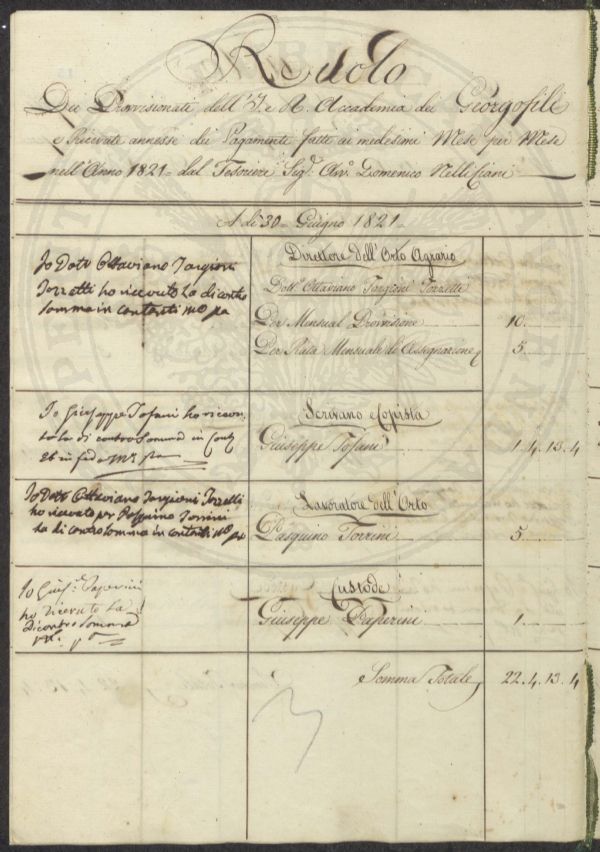 Ruolo
Dei Provisionati dell' I. e R. Accademia dei Georgofili
e Ricevute annesse dei Pagamenti fatti ai medesimi Mese per Mese
nell' Anno 1821 = dal Tesoriere Sig.r Avv.o Domenico Nelli Ciani
A dì 30 = Giugno 1821 =
Io Dott Ottaviano Targioni
Tozzetti ho ricevuto la di contro
somma in contanti mo pa
Direttore dell' Orto Agrario
Dott. Ottaviano Targioni Tozzetti
Per Mensual Provvisione 10.
Per Rata Mensuale di Assegnazione 5.
Io Giuseppe Tofani ho ricevu
to la di contro Somma in Conti
et in fede mo pa
Scrivano e Copista
Giuseppe Tofani 1. 4. 13. 4
Io Dott Ottaviano Targioni Tozzetti
ho ricevuto per Pasquino Torrini
la di contro somma in contanti mo pa
Lavoratore dell' Orto
Pasquino Torrini 5.
Io Gius. Paperini
ho ricevuto la
Di contro somma
Custode
Giuseppe Paperini 1.
Somma Totale 22. 4. 13. 4